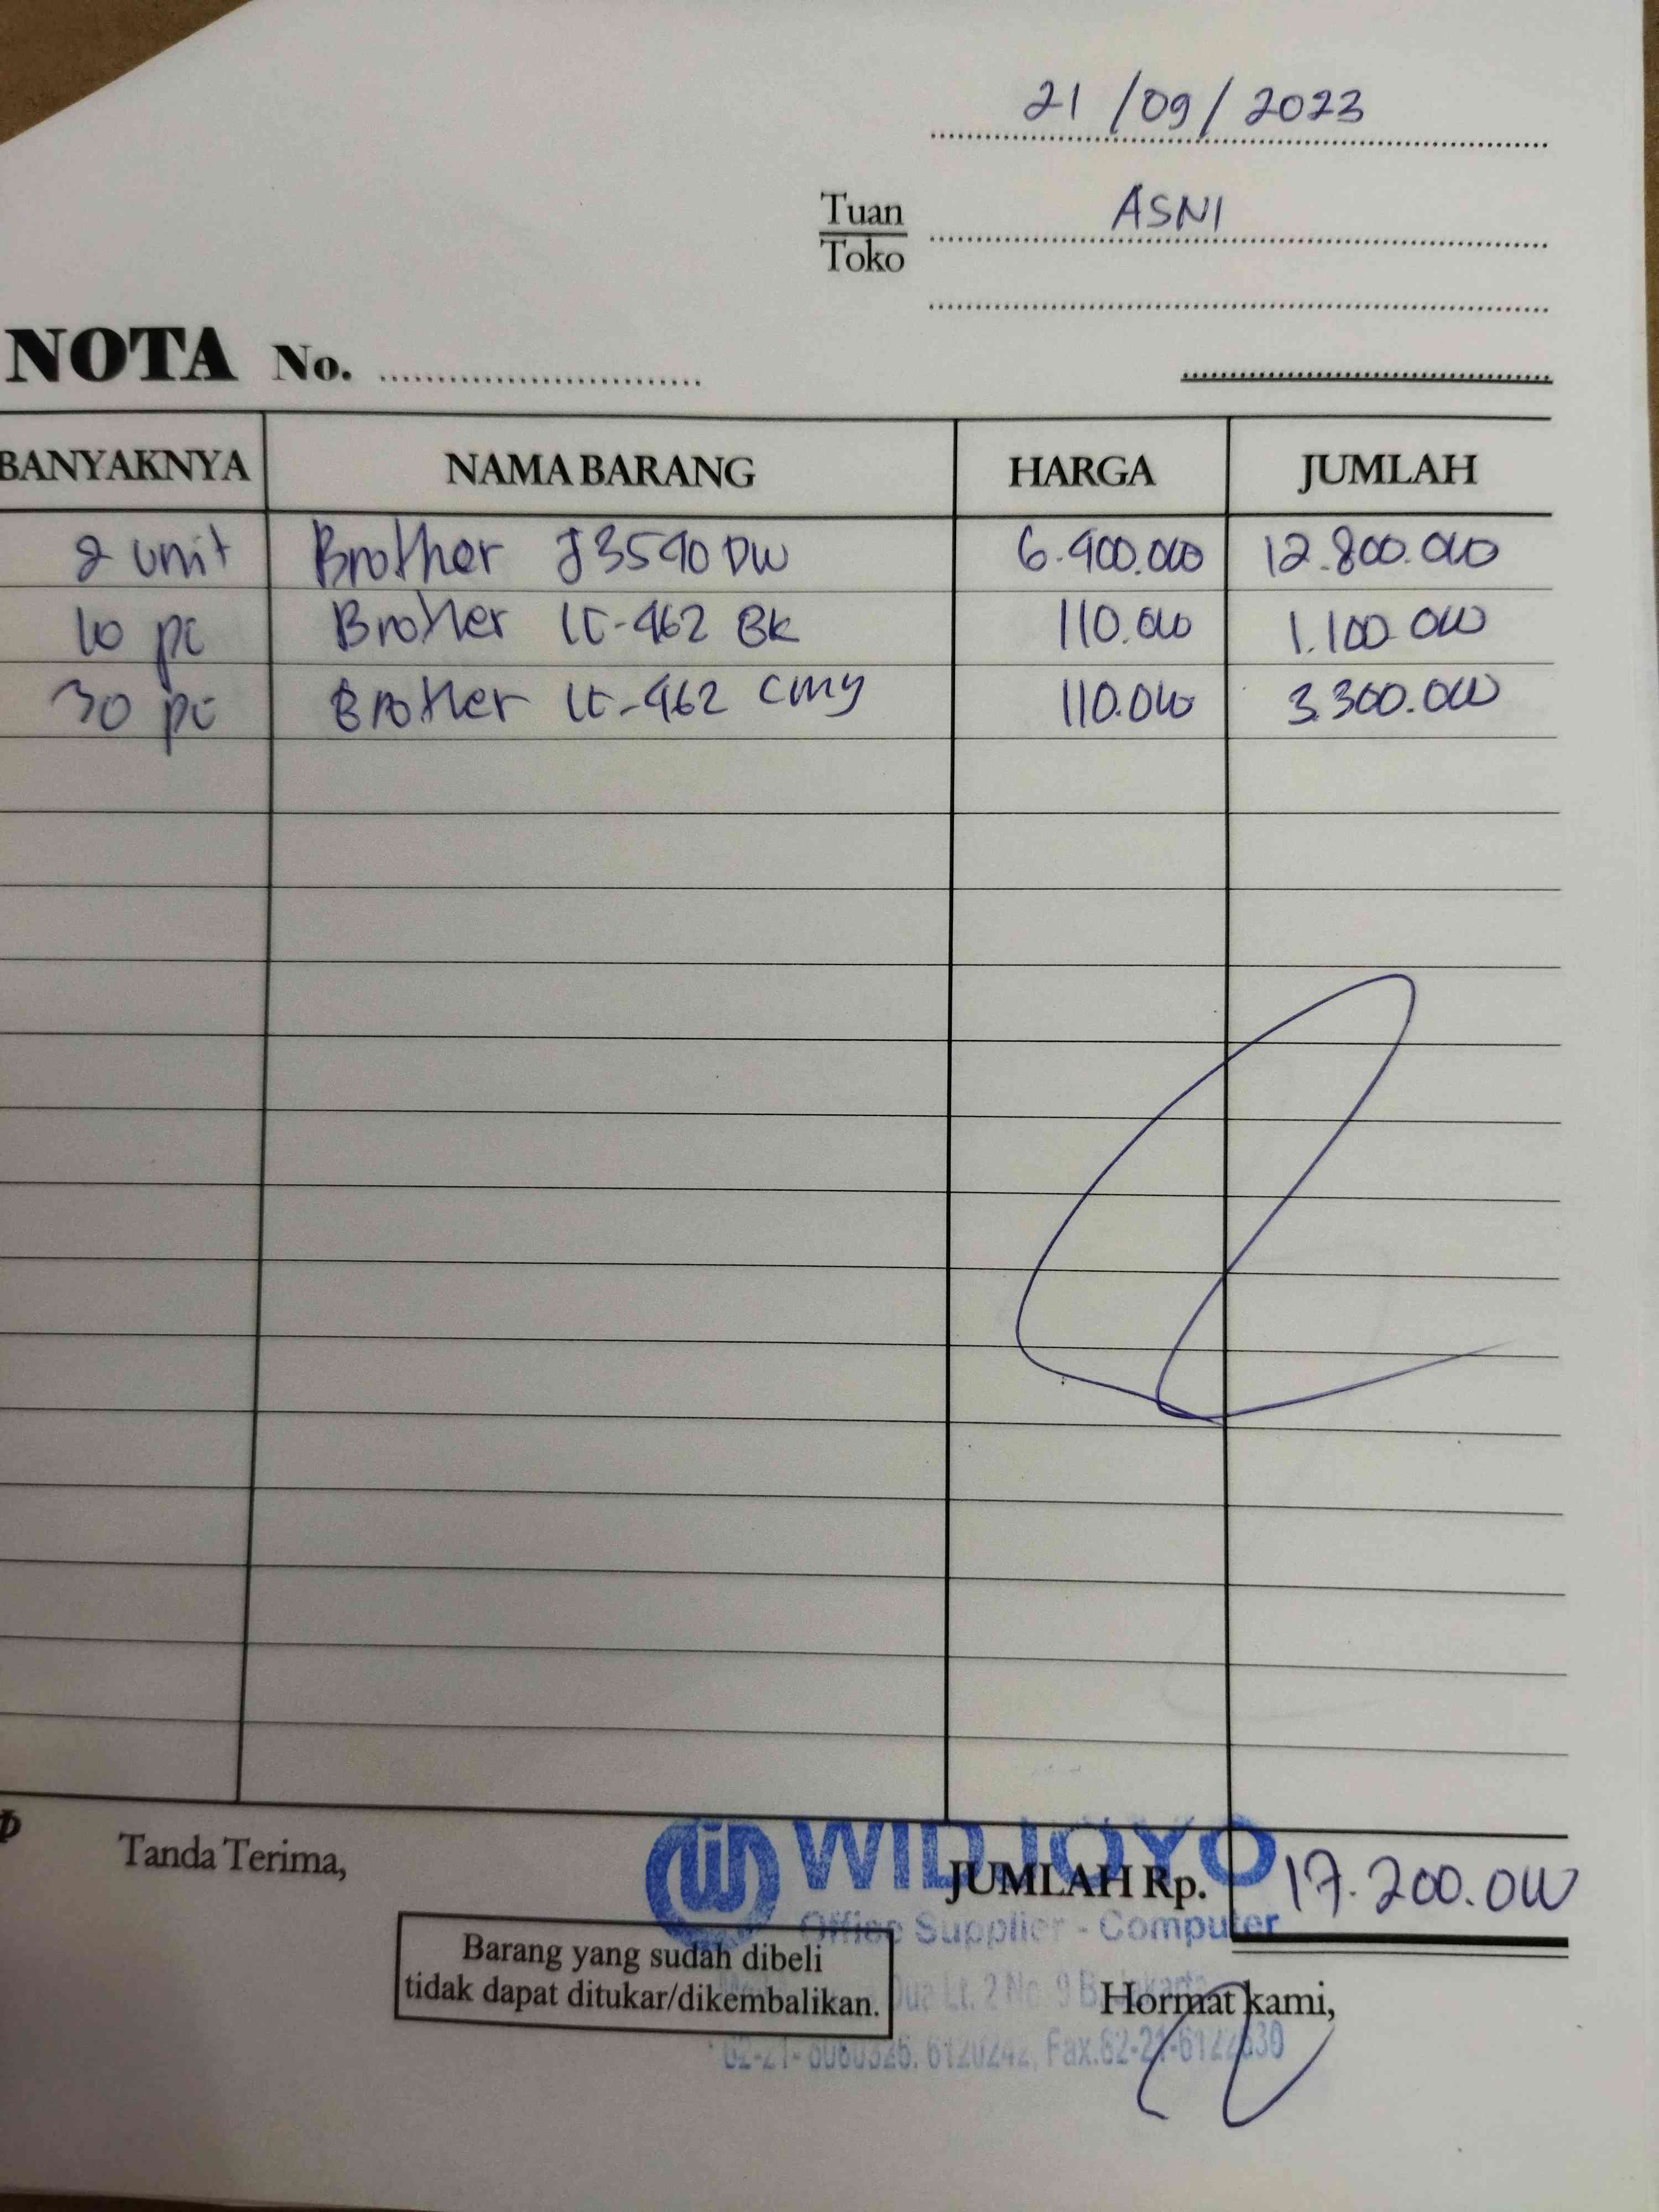 21/09/2023
Tuan
Toko
ASNI
NOTA No.
BANYAKNYA NAMA BARANG HARGA JUMLAH
2 unit Brother J3540DW 6.400.000 12.800.000
10 pc Brother LC-462 BK 110.000 1.100.000
30 pc Brother LC-462 CMY 110.000 3.300.000
Tanda Terima,
WIDJOYO
JUMLAH Rp. 17.200.000
Office Supplier - Computer
Barang yang sudah dibeli
tidak dapat ditukar/dikembalikan.
Dua Lt. 2 No. 9 B, Jakarta
Hormat kami,
6120242, Fax.62-21-6122630